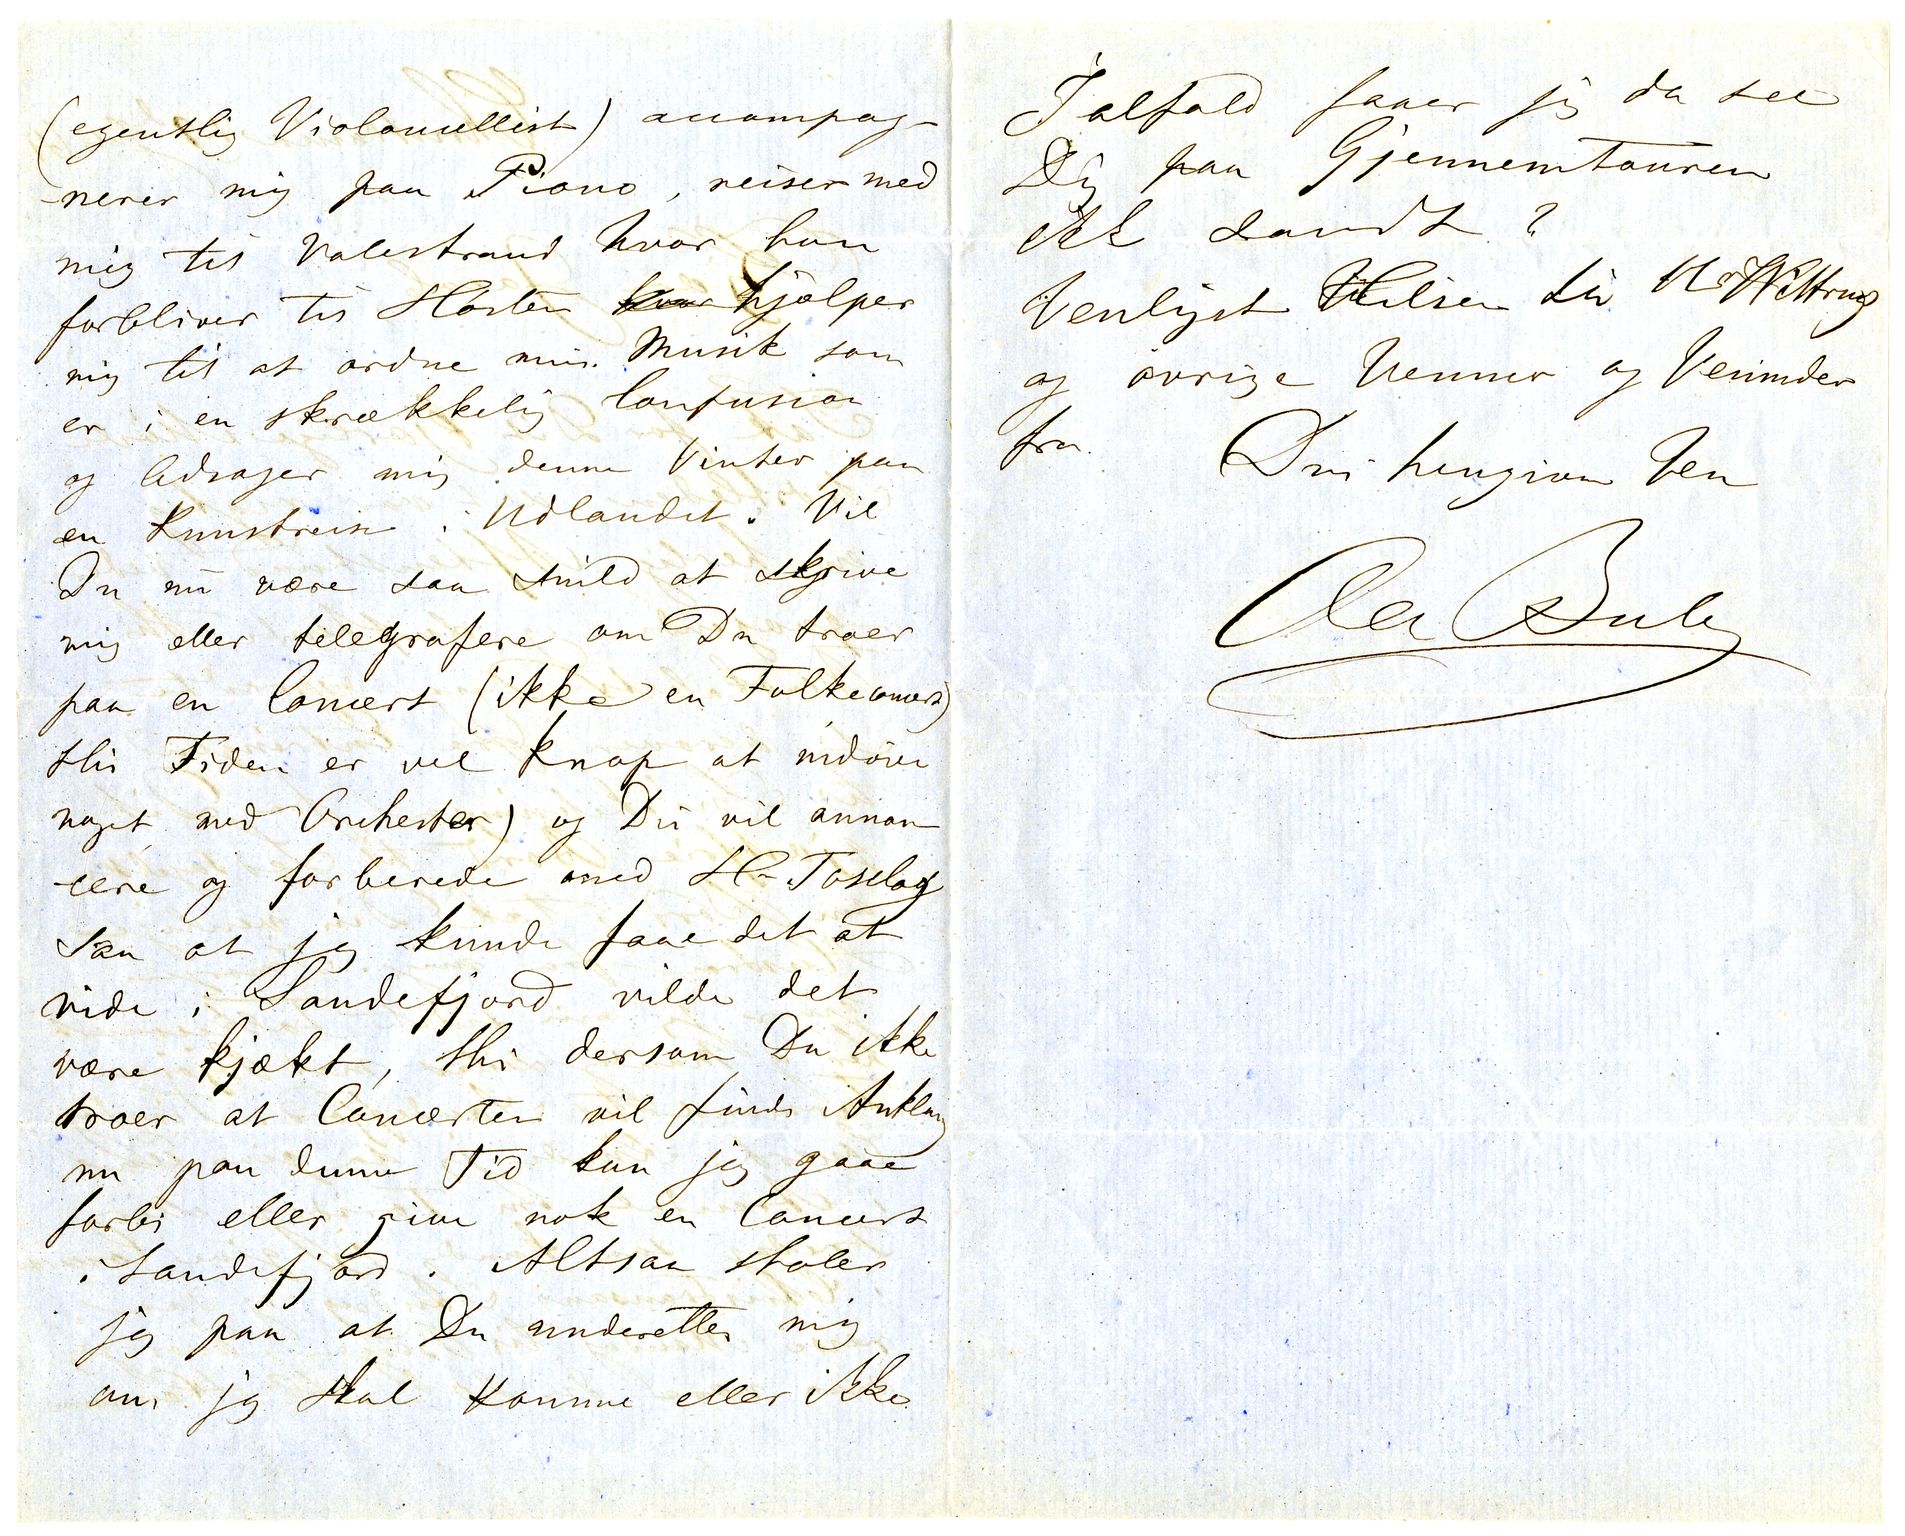 (egentlig Violoncellist) accompag-
-nerer mig paa Piano, reiser med
mig til Valestrand hvor han
forbliver til Høsten hvor hjælper
mig til at ordne min Musik som
er i en skrækkelig Confusion
og ledsager mig denne Vinter paa
en Kunstreise i Udlandet. Vil
Du nu være saa snild at skrive
mig eller telegrafere om Du troer
paa en Concert (ikke en Folkeconcert)
thi Tiden er vel knap at indøve
noget med Orchester) og Du vil annon
-cere og forberede med Hr
saa at jeg kunde faae det at
vide i Sandefjord vilde det
være kjækt, thi dersom Du ikke
troer at Concerten vil finde Anklang
nu paa denne Tid kan jeg gaae
forbi eller give nok en Concert
i Sandefjord. Altsaa stoler
jeg paa at Du underetter mig
om jeg skal komme eller ikke
Ialfald faaer jeg da see
Dig paa Gjennemtouren
ikke sandt?
Venligst Hilsen til Hr
og øvrige Venner og Veninder
fra
Din hengivne Ven
Ole Bull